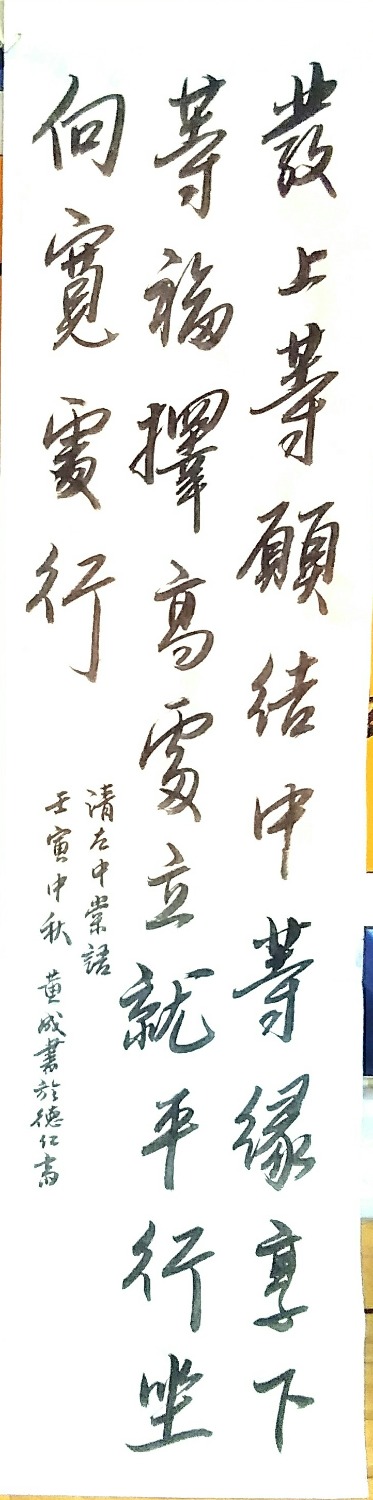 發上等願結中等緣享下
等福擇高處立就平行坐
向寬處行
清左中棠語
壬寅中秋 黃成書於德仁斋